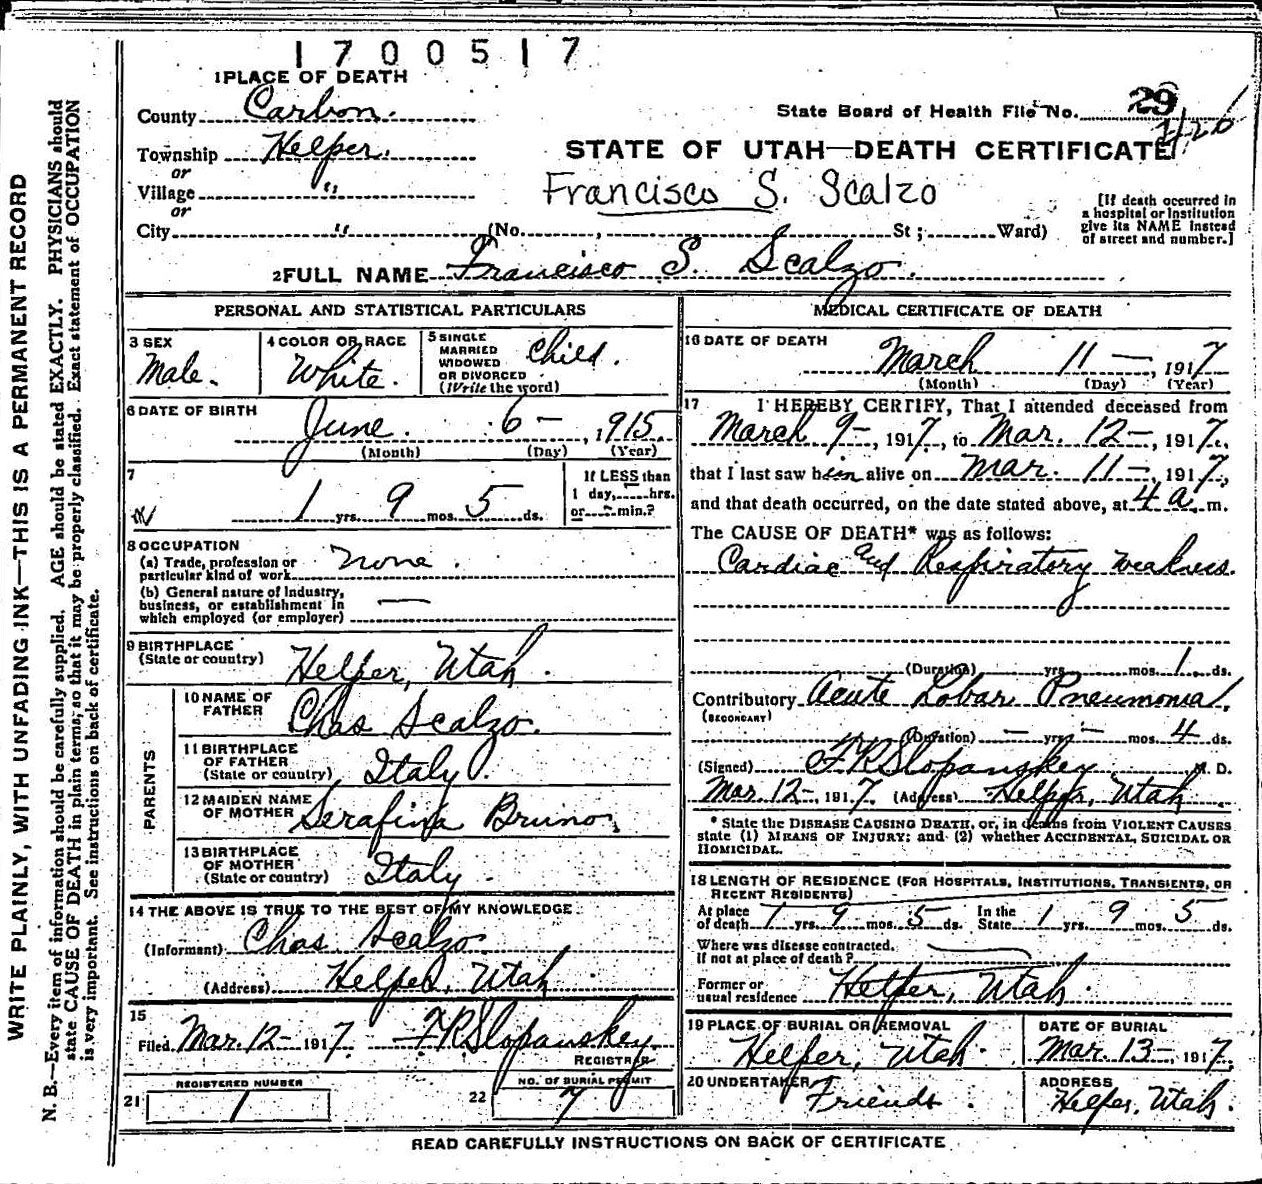 1700517
1 PLACE OF DEATH
County Carbon.
State Board of Health File No. 29
Township Helper.
or
Village "
or
City " (No. , St ; Ward)
STATE OF UTAH—DEATH CERTIFICATE
Francisco S. Scalzo
[If death occurred in
a hospital or institution
give its NAME instead
of street and number.]
2 FULL NAME Francisco S. Scalzo.
PERSONAL AND STATISTICAL PARTICULARS
3 SEX
Male.
4 COLOR OR RACE
White.
5 SINGLE
MARRIED
WIDOWED
OR DIVORCED
(Write the word)
Child.
6 DATE OF BIRTH
June. 6 – , 1915.
(Month) (Day) (Year)
7
1 yrs. 9 mos. 5 ds.
If LESS than
1 day, hrs.
or min.?
8 OCCUPATION
(a) Trade, profession or
particular kind of work none.
(b) General nature of Industry,
business, or establishment in
which employed (or employer) —
9 BIRTHPLACE
(State or country) Helper, Utah.
PARENTS
10 NAME OF
FATHER Chas Scalzo.
11 BIRTHPLACE
OF FATHER
(State or country) Italy.
12 MAIDEN NAME
OF MOTHER Serafina Bruno,
13 BIRTHPLACE
OF MOTHER
(State or country) Italy.
14 THE ABOVE IS TRUE TO THE BEST OF MY KNOWLEDGE
(Informant) Chas Scalzo
(Address) Helper, Utah
15
Filed Mar. 12 – 1917. F.R. Slopanskey
REGISTRAR
REGISTERED NUMBER
21 1
NO. OF BURIAL PERMIT
22 7
MEDICAL CERTIFICATE OF DEATH
16 DATE OF DEATH
March 11 — , 1917
(Month) (Day) (Year)
17 I HEREBY CERTIFY, That I attended deceased from
March 9 – , 1917, to Mar. 12 – , 1917,
that I last saw him alive on Mar. 11 – , 1917,
and that death occurred, on the date stated above, at 4 a. m.
The CAUSE OF DEATH* was as follows:
Cardiac and Respiratory weakness.
(Duration) yrs. mos. 1 ds.
Contributory Acute Lobar Pneumonia.
(SECONDARY)
(Duration) – yrs. – mos. 4 ds.
(Signed) F.R. Slopanskey M. D.
Mar. 12 – , 1917. (Address) Helper, Utah
* State the DISEASE CAUSING DEATH, or, in deaths from VIOLENT CAUSES
state (1) MEANS OF INJURY; and (2) whether ACCIDENTAL, SUICIDAL OR
HOMICIDAL.
18 LENGTH OF RESIDENCE (FOR HOSPITALS, INSTITUTIONS, TRANSIENTS, OR
RECENT RESIDENTS)
At place
of death 1 yrs. 9 mos. 5 ds. In the
State 1 yrs. 9 mos. 5 ds.
Where was disease contracted,
If not at place of death?
Former or
usual residence Helper, Utah.
19 PLACE OF BURIAL OR REMOVAL
Helper, Utah.
DATE OF BURIAL
Mar. 13 – , 1917,
20 UNDERTAKER
Friends.
ADDRESS
Helper, Utah.
READ CAREFULLY INSTRUCTIONS ON BACK OF CERTIFICATE
WRITE PLAINLY, WITH UNFADING INK—THIS IS A PERMANENT RECORD
N. B.—Every item of information should be carefully supplied. AGE should be stated EXACTLY. PHYSICIANS should
state CAUSE OF DEATH in plain terms, so that it may be properly classified. Exact statement of OCCUPATION
is very important. See instructions on back of certificate.